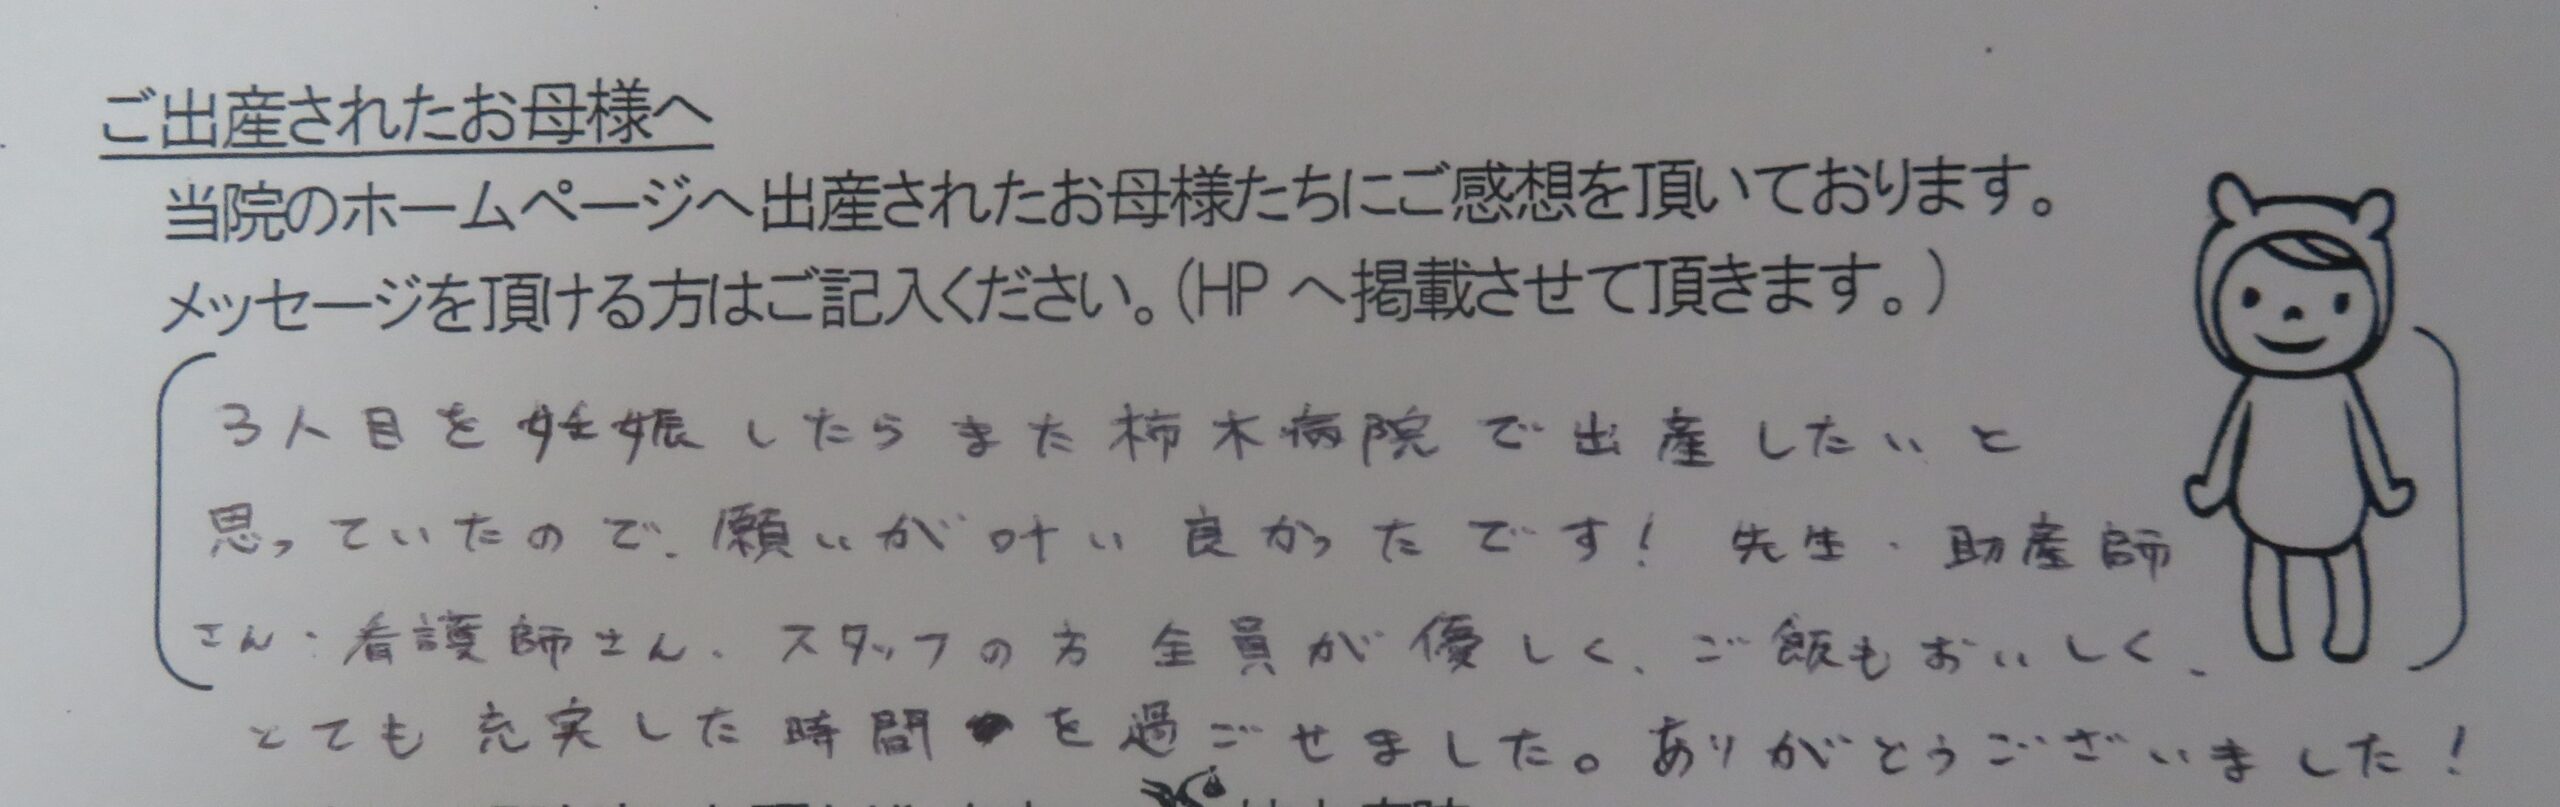 ご出産されたお母様へ
当院のホームページへ出産されたお母様たちにご感想を頂いております。
メッセージを頂ける方はご記入ください。（HPへ掲載させて頂きます。）
3人目を妊娠したらまた柿木病院で出産したいと
思っていたので、願いが叶い良かったです！先生・助産師
さん・看護師さん、スタッフの方全員が優しく、ご飯もおいしく、
とても充実した時間を過ごせました。ありがとうございました！